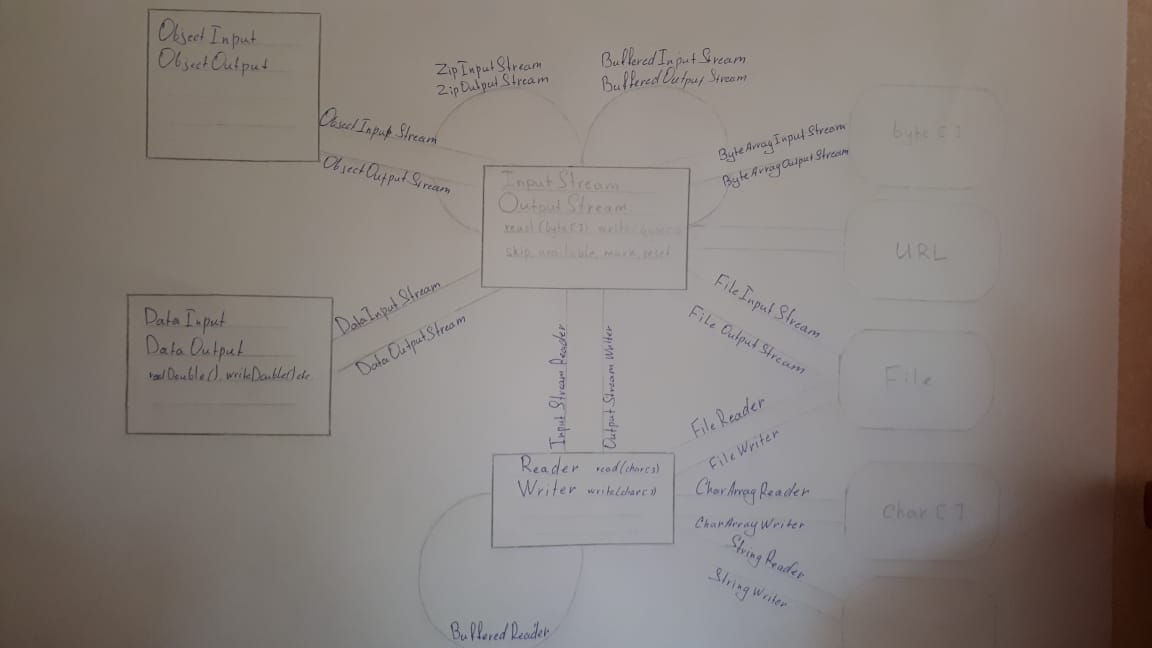 Object Input
Object Output
ZipInputStream
ZipOutputStream
BufferedInputStream
BufferedOutputStream
ObjectInputStream
ObjectOutputStream
ByteArrayInputStream
ByteArrayOutputStream
byte [ ]
InputStream
OutputStream
read (byte[])
skip, available, mark, reset
URL
DataInputStream
DataOutputStream
Data Input
Data Output
readDouble(), writeDouble() etc.
File Input Stream
File Output Stream
File
Input Stream Reader
Output Stream Writer
FileReader
FileWriter
Reader read(char[])
Writer write(char[])
CharArrayReader
CharArrayWriter
Char [ ]
StringReader
StringWriter
BufferedReader